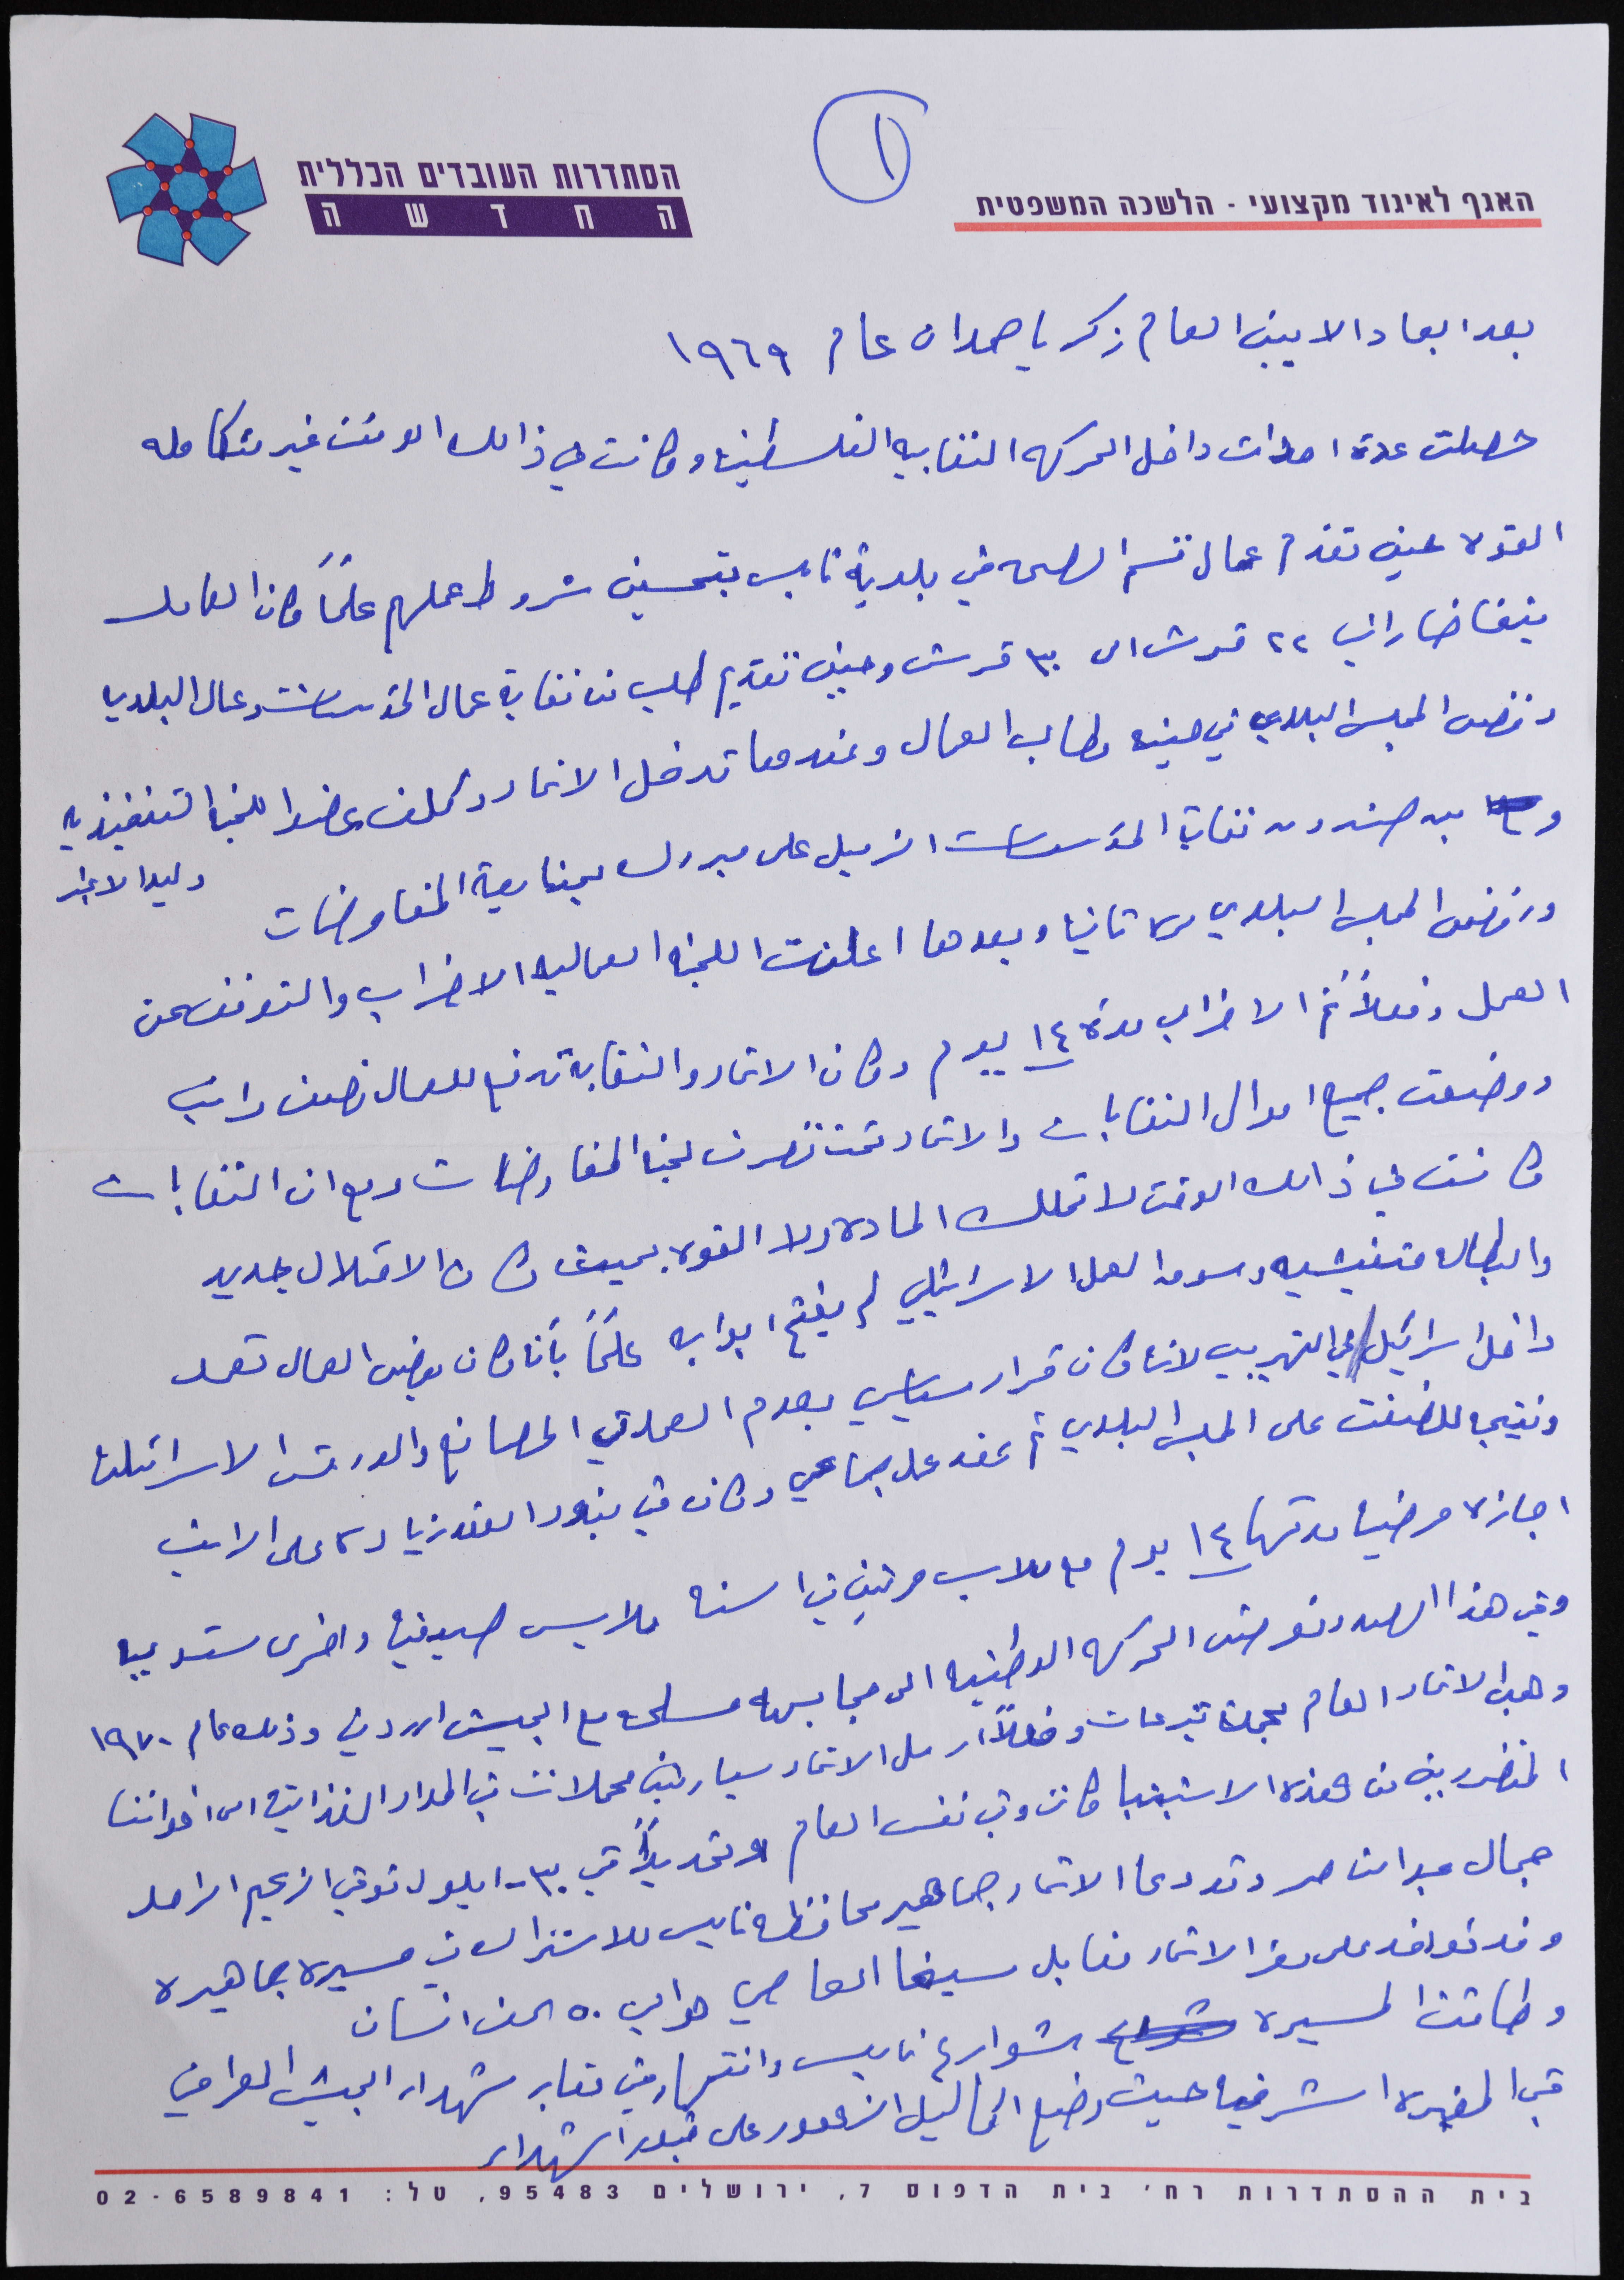 ١
הסתדרות העובדים הכללית
החדשה
האגף לאיגוד מקצועי - הלשכה המשפטית
بعد ابعاد الامين العام زكريا حمدان عام ١٩٦٩
حصلت عدة احداث داخل الحركه النقابيه الفلسطينيه وكانت في ذالك الوقت غير متكامله
القوه حين تقدم عمال قسم الصحه في بلدية نابلس بتحسين شروط عملهم علماً كان العامل
يتقاضا راتب ٢٢ قرش الى ٣٠ قرش وحين تقديم طلب من نقابة عمال المؤسسات وعمال البلديه
رفض المجلس البلدي في حينه مطالب العمال وعندها تدخل الاتحاد وكلف عضوا اللجنه التنفيذيه
و امين صندوق نقابة المؤسسات الزميل على مبروك بمتابعة المفاوضات
ورفض المجلس البلدي مره ثانيه وبعدها اعلنت اللجنه العماليه الاضراب والتوقف عن
العمل وفعلاً تم الاضراب مدة ١٤ يوم وكان الاتحاد والنقابه تدفع للعمال نصف راتب
ووضعت جميع اموال النقابات والاتحاد تحت تصرف لجنة المفاوضات ومع ان النقابات
كانت في ذالك الوقت لا تملك الماده ولا القوه بحيث كان الاحتلال جديد
والبطاله متفشيه وسوق العمل الاسرائيلي لم يفتح ابوابه علماً بأنه كان بعض العمال تعمل
داخل اسرائيل في التهريب لانه كان قرار سياسي بعدم العمل في المصانع والورش الاسرائيليه
ونتيجه للضغط على المجلس البلدي تم عقد عمل جماعي وكان في بنود العقد زياده على الراتب
اجازه مرضيه مدتها ١٤ يوم مع ملابس مرتين في السنه ملابس صيفيه واخرى شتويه
وفي هذا الصدد تعرضت الحركه الوطنيه الى مجابهه مسلحه مع الجيش الاردني وذلك عام ١٩٧٠
وهب الاتحاد العام بحملة تبرعات وفعلاً ارسل الاتحاد سيارتين محملات في المواد الغذائيه الى اخواننا
المتضررين من هذه الاشتباكات وفي نفس العام وتحديداً في ٣٠ - ايلول توفي الزعيم الراحل
جمال عبد الناصر وقد دعا الاتحاد جماهير محافظة نابلس للاشتراك في مسيره جماهيره
وقد توافد على مقر الاتحاد مقابل سينما العاصي حوالي ٥٠ الف انسان
وطافت المسيره شوارع نابلس وانتهت في مقابر شهداء الجيش العراقي
في المقبره الشرقيه حيث وضع اكاليل الزهور على قبور الشهداء
בית ההסתדרות רח' בית הדפוס 7, ירושלים 95483, טל: 02-6589841